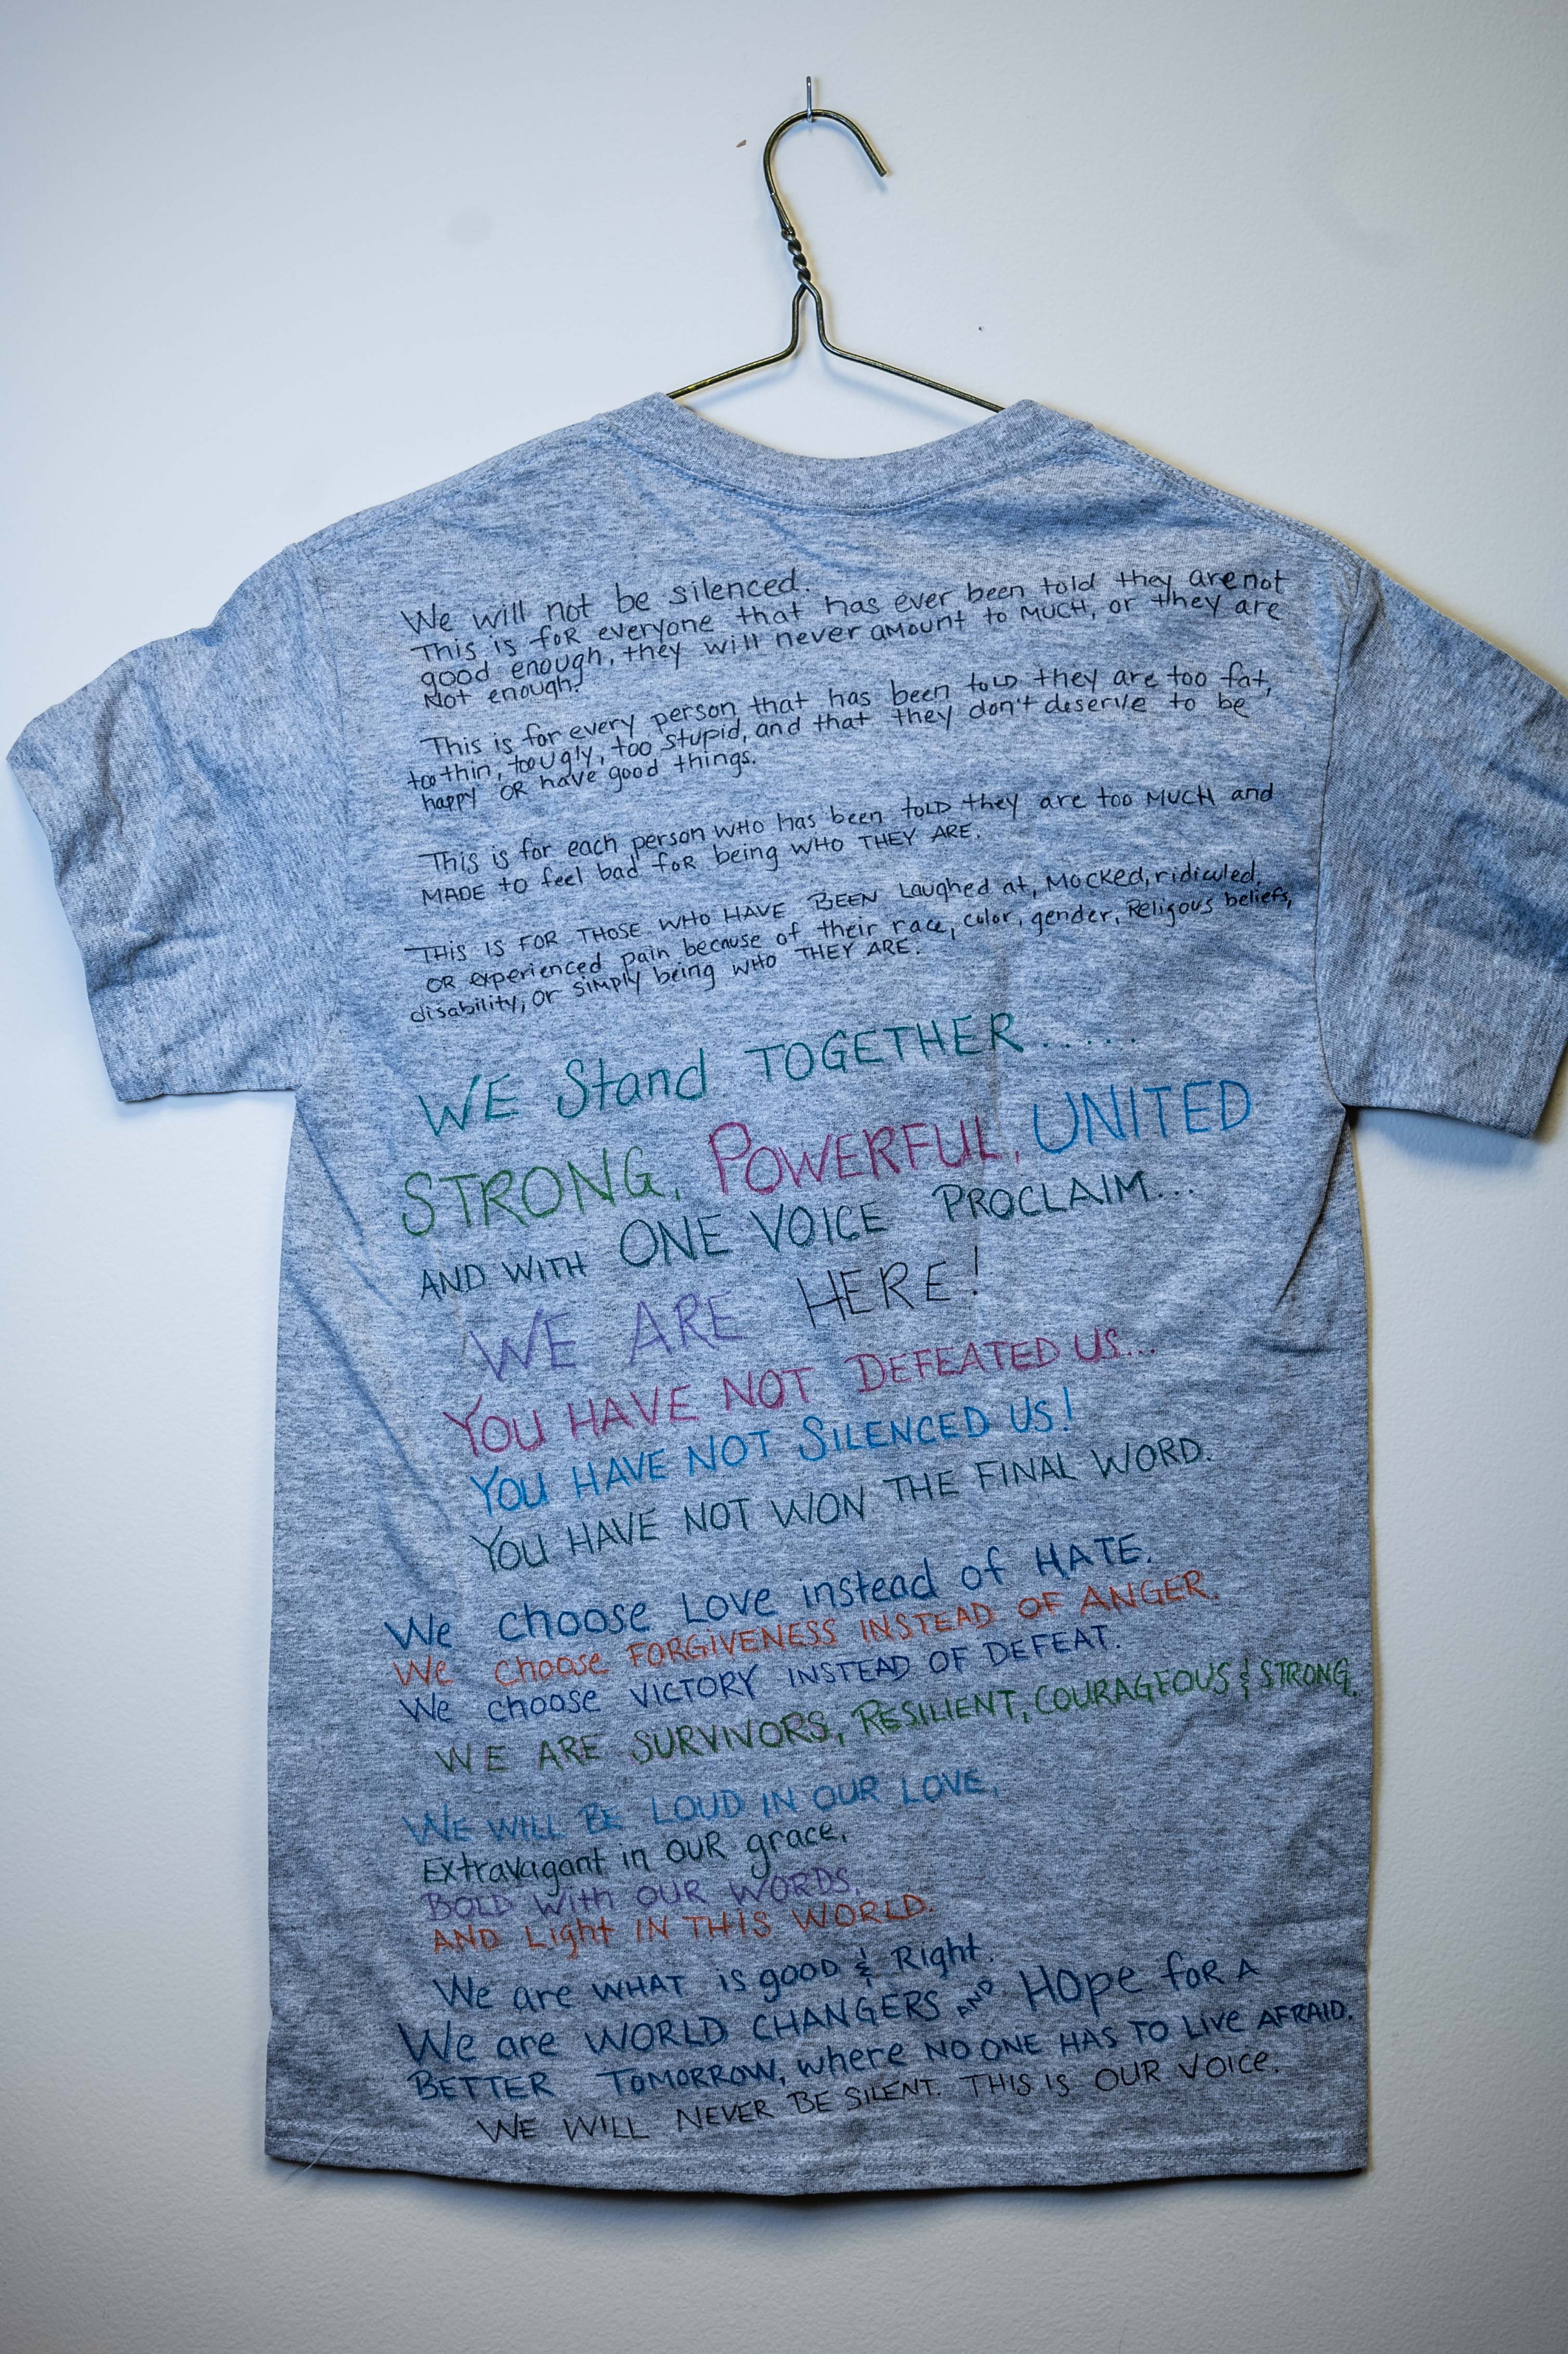 We will not be silenced.
This is foR everyone that has ever been told they are not
good enough, they will never aMount to MUCH, or they are
Not enough.
This is for every person that has been toLD they are too fat,
too thin, too ugly, too stupid, and that they don't deserve to be
happy OR have good things.
This is for each person WHO has been toLD they are too MUCH and
MADE to feel bad foR being WHO THEY ARE.
THIS IS FOR THOSE WHO HAVE BEEN Laughed at, MocKed, ridiculed,
OR experienced pain because of their race, color, gender, Religous beliefs,
disability, or siMply being WHO THEY ARE.
WE Stand TOGETHER.....
STRONG, POWERFUL, UNITED
AND WITH ONE VOICE PROCLAIM...
WE ARE HERE!
YOU HAVE NOT DEFEATED US...
YOU HAVE NOT SILENCED US!
YOU HAVE NOT WON THE FINAL WORD.
We choose LOVe instead of HATE.
We choose FORGIVENESS INSTEAD OF ANGER.
We choose VICTORY INSTEAD OF DEFEAT.
WE ARE SURVIVORS, RESILIENT, COURAGEOUS & STRONG.
WE WILL BE LOUD IN OUR LOVE,
Extravagant in OUR grace,
BOLD With OUR WORDS,
AND Light IN THIS WORLD.
We are WHAT is gOOD & Right.
We are WORLD CHANGERS AND HOpe foR A
BETTER TOMORROW, where NO ONE HAS TO Live AFRAID.
WE WILL NEVER BE SILENT. THIS IS OUR VOice.